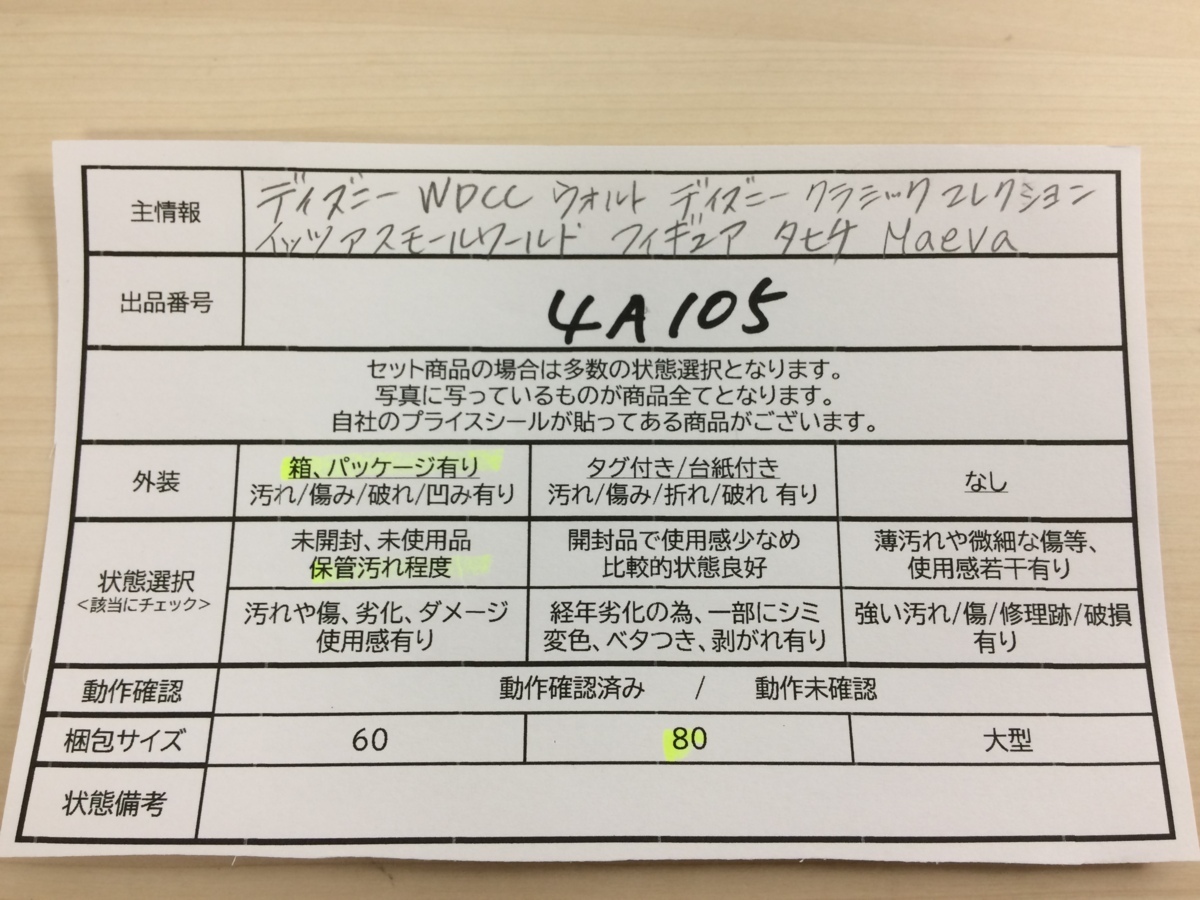 主情報
ディズニー WDCC ウォルト ディズニー クラシック コレクション
イッツアスモールワールド フィギュア タヒチ Maeva
出品番号
4A105
セット商品の場合は多数の状態選択となります。
写真に写っているものが商品全てとなります。
自社のプライスシールが貼ってある商品がございます。
外装
箱、パッケージ有り
汚れ/傷み/破れ/凹み有り
タグ付き/台紙付き
汚れ/傷み/折れ/破れ 有り
なし
状態選択
<該当にチェック>
未開封、未使用品
保管汚れ程度
開封品で使用感少なめ
比較的状態良好
薄汚れや微細な傷等、
使用感若干有り
汚れや傷、劣化、ダメージ
使用感有り
経年劣化の為、一部にシミ
変色、ベタつき、剥がれ有り
強い汚れ/傷/修理跡/破損
有り
動作確認
動作確認済み / 動作未確認
梱包サイズ
60
80
大型
状態備考